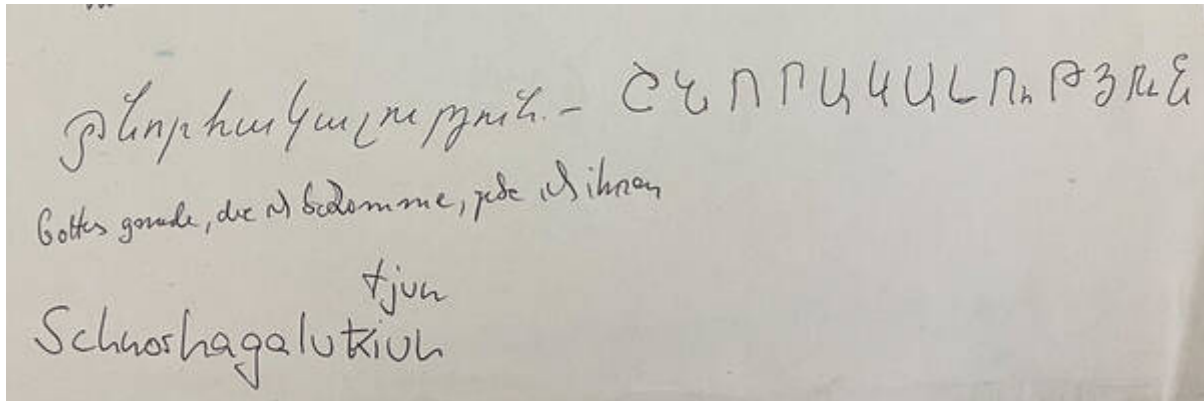 Շնորհակալություն. – ՇՆՈՐԱԿԱԼՈւԹՅՈւՆ
Gottes gnade, die ich bekomme, gebe ich ihnen
tjun
Schnorhagalutiun